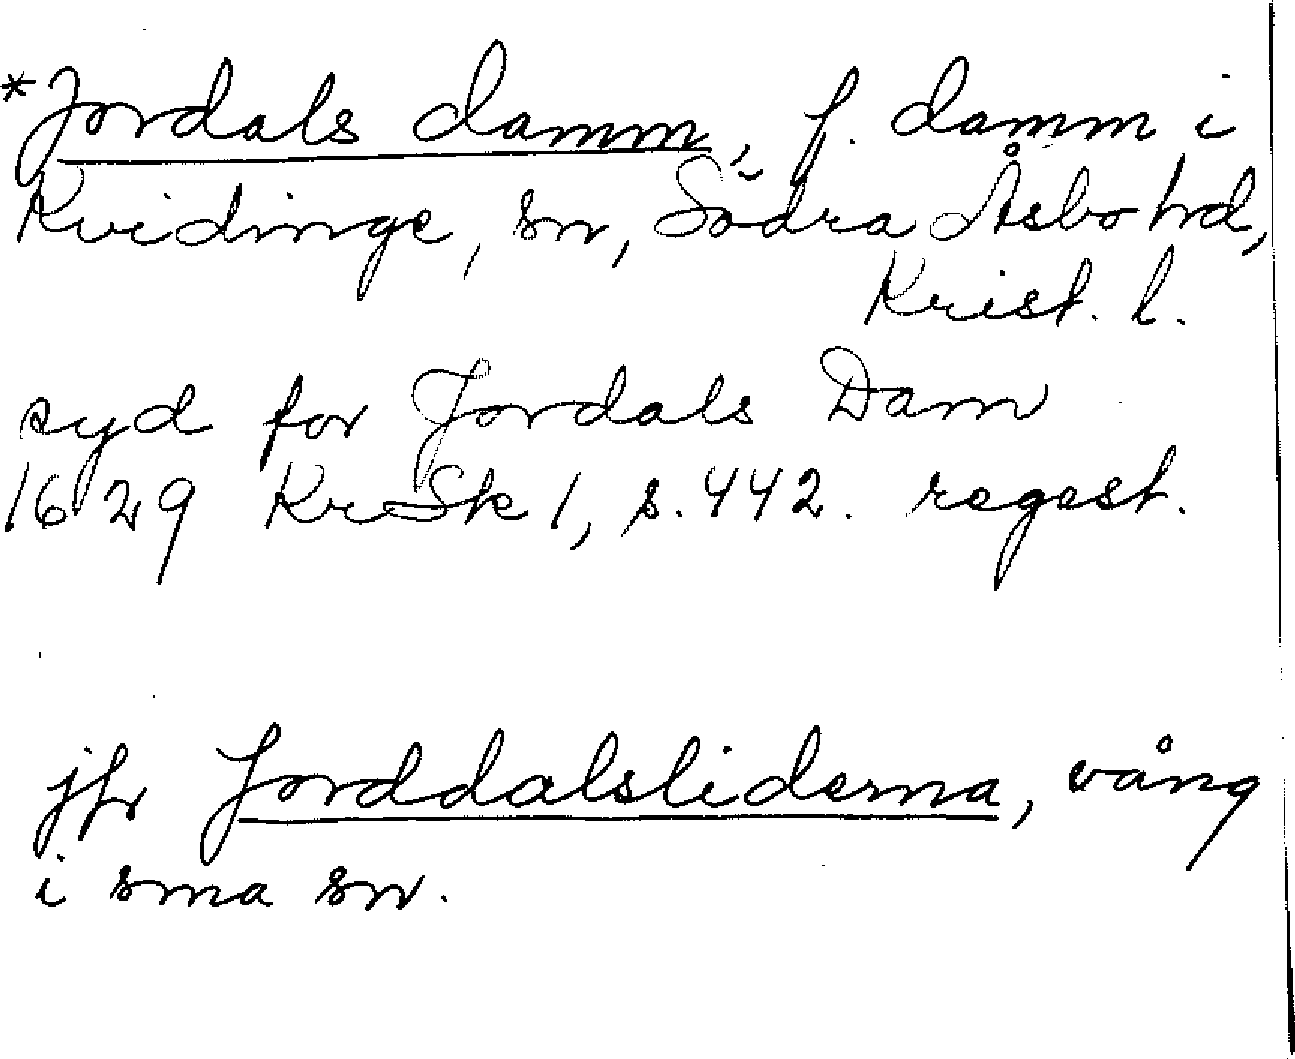 *Jordals damm, f. damm i
Kvidinge, sn, Södra Åsbo hd,
Krist. l.
syd for Jordals Dam
1629 KrSk 1, s. 442. regest.
jfr Jorddalsliderna, vång
i sma sn.